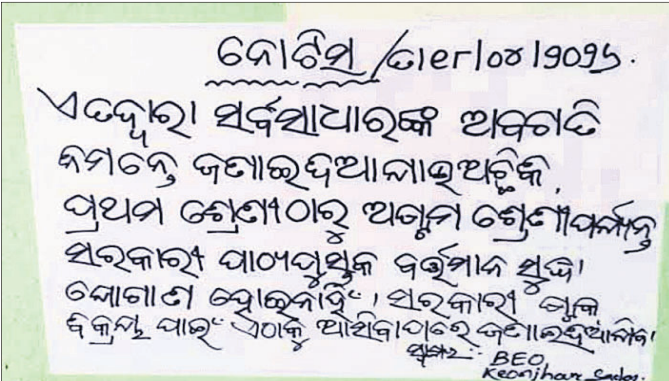 ନୋଟିସ୍ /
ଏତଦ୍ଦ୍ୱାରା ସର୍ବସାଧାରଙ୍କ ଅବଗତି
ନିମନ୍ତେ ଜଣାଇଦିଆଯାଉଅଛିକି,
ପ୍ରଥମ ଶ୍ରେଣୀଠାରୁ ଅଷ୍ଟମ ଶ୍ରେଣୀପର୍ଯ୍ୟନ୍ତ
ସରକାରୀ ପାଠ୍ୟପୁସ୍ତକ ବର୍ତ୍ତମାନ ସୁଦ୍ଧା
ଯୋଗାଣ ହୋଇନାହିଁ। ସରକାରୀ
ବିକ୍ରୟ ପାଇଁ ଏଠାକୁ ଆସିବାପରେ ଜଣାଇଦିଆଯିବ।
BEO,
Keonjhar Sadar.